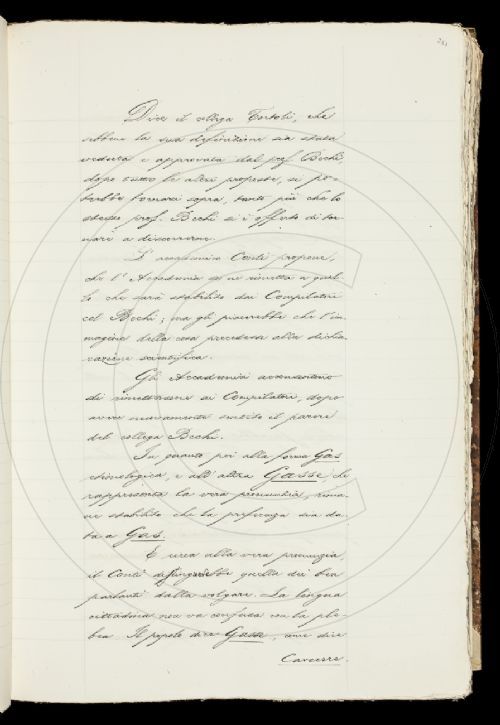 Dice il collega Tortoli, che
sebbene la sua definizione sia stata
veduta e approvata dal prof. Bechi
dopo tutte le altre proposte, si po-
trebbe tornarci sopra, tanto più che lo
stesso prof. Bechi si è offerto di tor-
nare a discorrerne.
L'accademico Conti propone,
che l'Accademia se ne rimetta a quel-
lo che sarà stabilito dai Compilatori
col Bechi; ma gli piacerebbe che l'im-
magine della cosa precedesse alla dichia-
razione scientifica.
Gli Accademici acconsentono
di rimettersene ai Compilatori, dopo
avere nuovamente sentito il parere
del collega Bechi.
In quanto poi alla forma Gas
etimologica, e all'altra Gasse che
rappresenta la vera pronunzia, rima-
ne stabilito che la preferenza sia da-
ta a Gas.
E circa alla vera pronunzia,
il Conti distinguerebbe quella dei ben
parlanti dalla volgare. La lengua
cittadina non va confusa con la ple-
bea. Il popolo dice Gasse, come dice
Carcere.